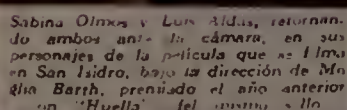 Sabina Olmos y Luis Aldás, retornan-
do ambos ante la cámara, en sus
personajes de la película que se filma
en San Isidro, bajo la dirección de Mo
glia Barth, premiado el año anterior
"Huella" del mismo